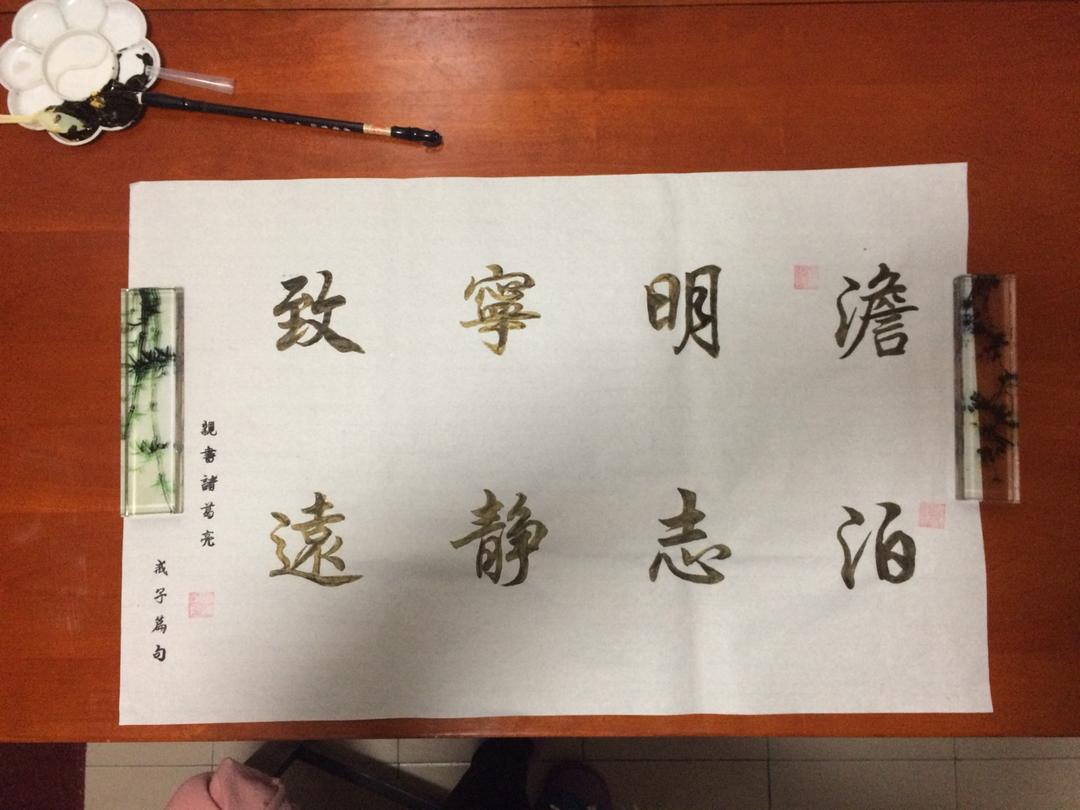 澹泊
明志
寧靜
致遠
親書諸葛亮
戒子篇句